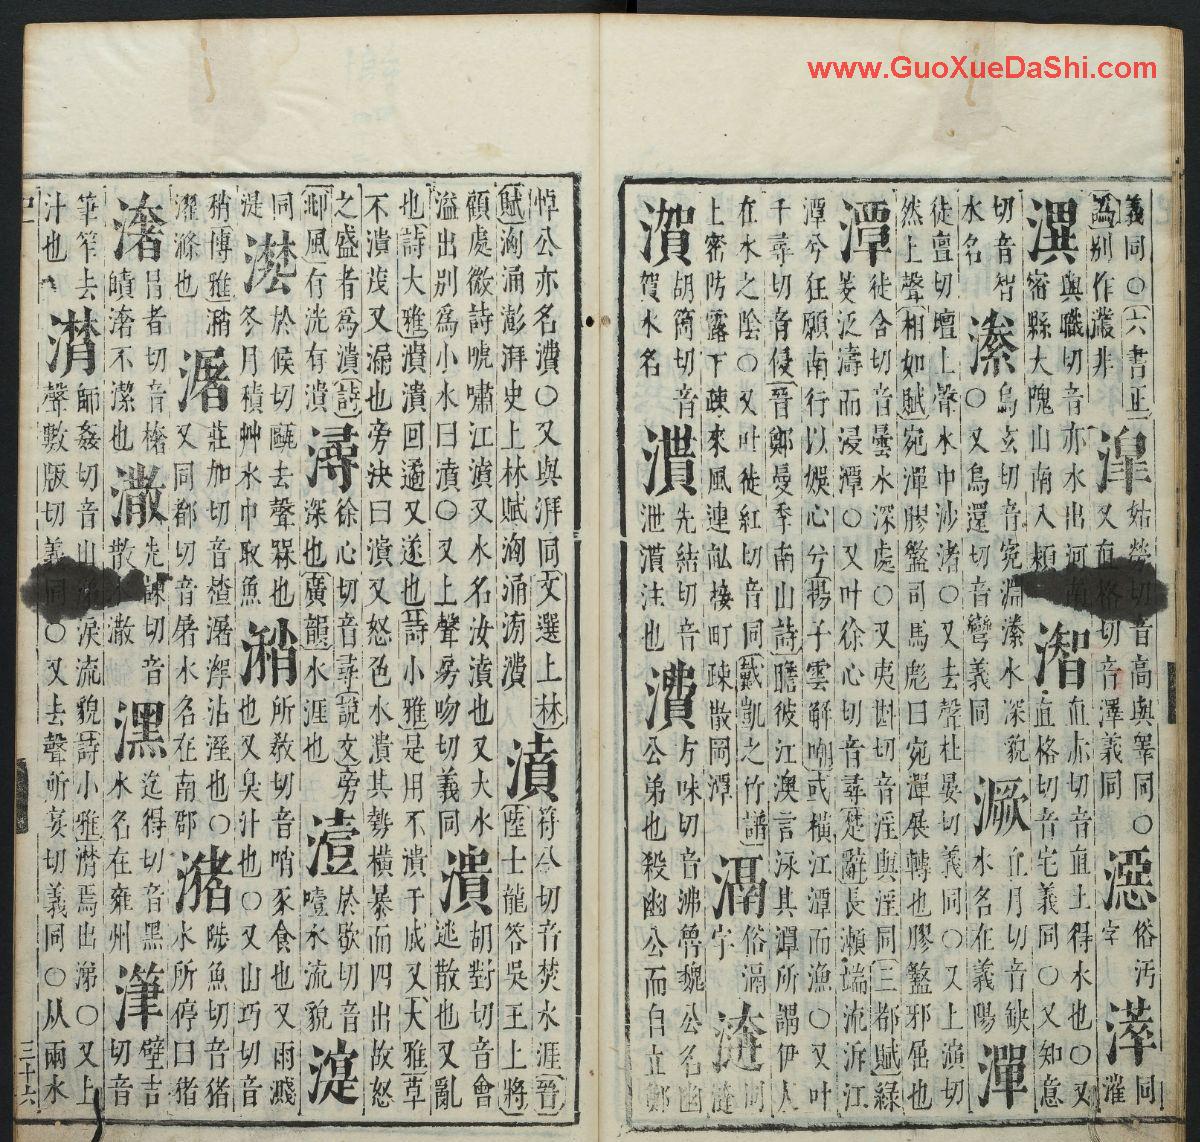 義同○六書正爲別作瀥非滜姑勞切音高與睾同○又直格切音澤義同 俗汚字 同漼
潩與職切音亦水出河南密縣大隗山南入潁潪直炙切音直土得水也○又直格切音宅義同○又知意
切音智水名潫烏玄切音宛淵潫水深貌○又烏還切音彎義同 直月切音缺水名在義陽潬
徒亶切壇上聲水中沙渚○又去聲杜晏切義同○又上演切然上聲相如賦宛潬膠盭司馬彪曰宛潬展轉也膠盭邪屈也
潭徒含切音曇水深處○又夷斟切音淫與淫同三都賦綠菱泛濤而浸潭○又叶徐心切音尋楚辭長瀨湍流泝江
潭兮狂顧南行以娛心兮揚子雲解嘲或橫江潭而漁○又叶千尋切音侵晉鄭曼季南山詩瞻彼江澳言泳其潭所謂伊人
在水之陰○又叶徒紅切音同戴凱之竹譜上密防露下疎來風連畝接町疎散岡潭 俗滆字 同漣
胡箇切音賀水名 先結切音泄 注也㵒方味切音沸魯魏公名 公弟也殺幽公而自立鄭
悼公亦名㵒○又與湃同文選上林賦洶涌澎湃史上林賦洶涌滂㵒濆符分切音焚水涯晉陸士龍答吳王上將
顧處微詩唬嘯江濆又水名汝濆也又大水溢出別爲小水曰濆○又上聲房吻切義同潰胡對切音會逃散也又亂
也詩大雅潰潰回遹又遂也詩小雅是用不潰于成又大雅草不潰茂又漏也旁決曰潰又怒色水潰其勢橫暴而四出故怒
之盛者爲潰詩邶風有洸有潰潯徐心切音尋說文旁深也廣韻水涯也 於歇切音噎水流貌
同湜 於候切甌去聲罧也冬月積艸水中取魚潲所敎切音哨豕食也又雨濺也又臭汁也○又山巧切音
稍博雅潲濯滌也 莊加切音楂 沾溼也○又同都切音屠水名在南郡潴陟魚切音豬水所停曰豬
昌者切音 不潔也潵先 切音散 潵潶迄得切音黑水名在雍州潷壁吉切音
筆笮去汁也潸師姦切音山 淚流貌詩小雅潸焉出涕○又上聲數版切義同○又去聲所晏切義同○从兩水
三十六
www.GuoXueDaShi.com